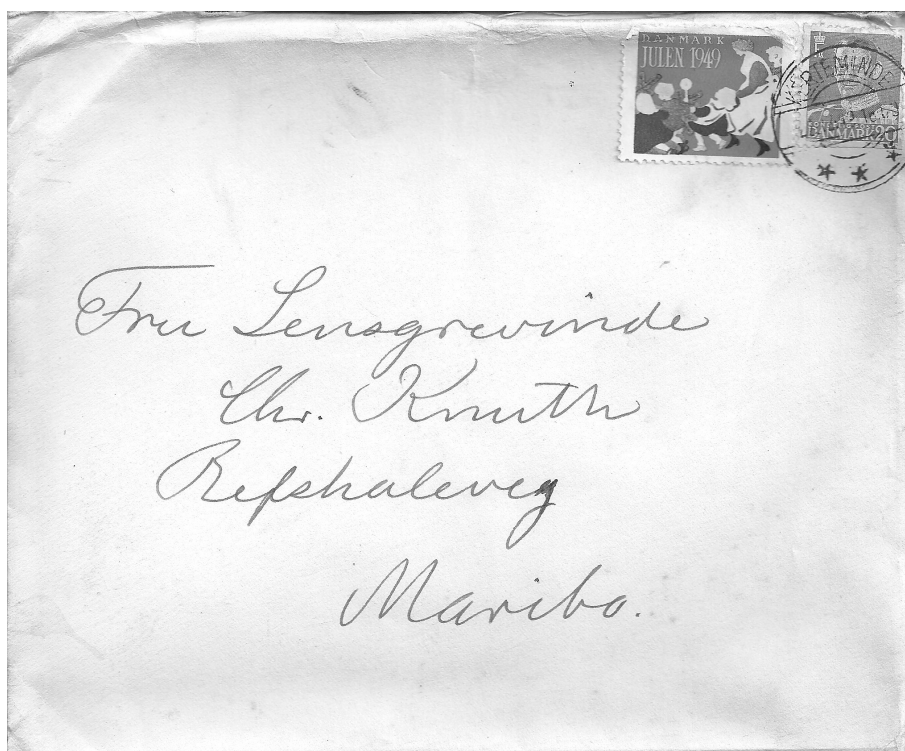 DANMARK
JULEN 1949
KERTEMINDE
DANMARK 20
Fru Lensgrevinde
Chr. Knuth
Refshalevej
Maribo.